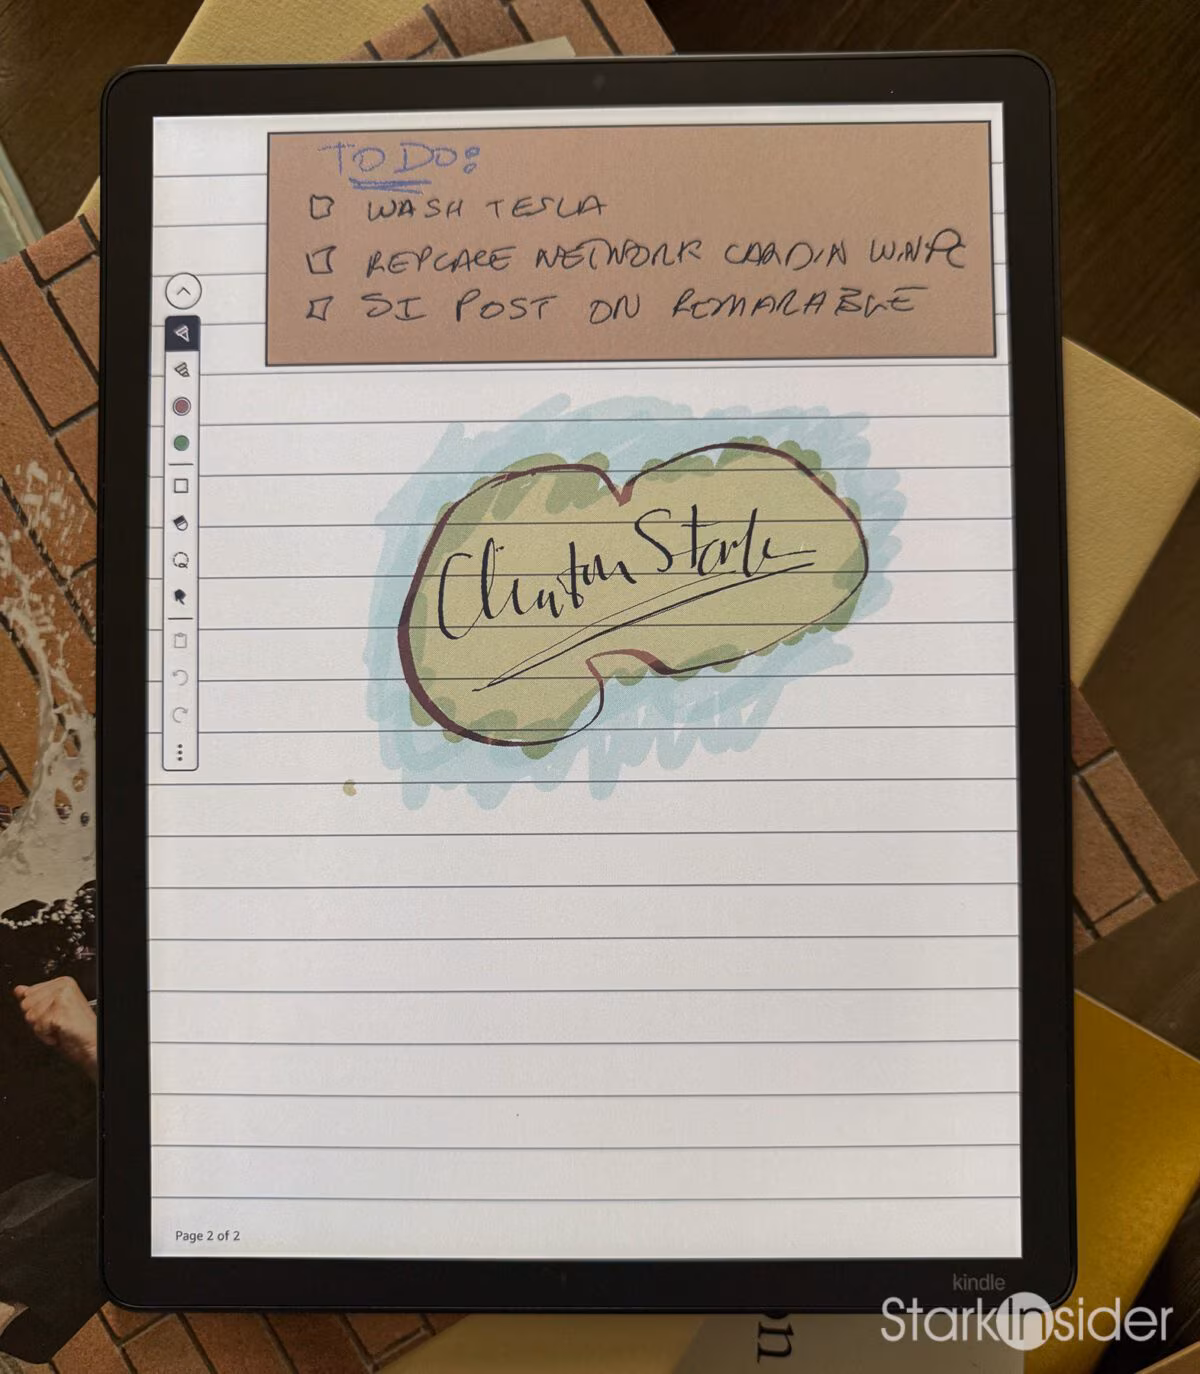 TO DO:
WASH TESLA
REPLACE NETWORK CARD IN WIN PC
SI POST ON REMARABLE
Clinton Stark
Page 2 of 2
kindle
StarkInsider
on